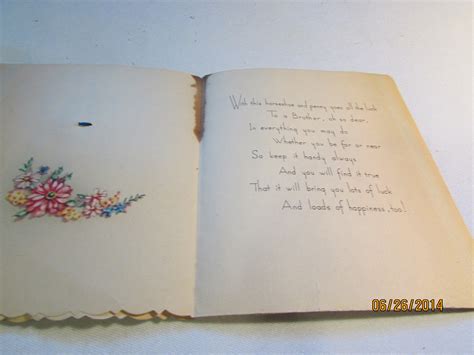 With this horseshoe and penny goes all the luck
To a Brother, oh so dear,
In everything you may do
Whether you be far or near
So keep it handy always
And you will find it true
That it will bring you lots of luck
And loads of happiness, too!
06/26/2014